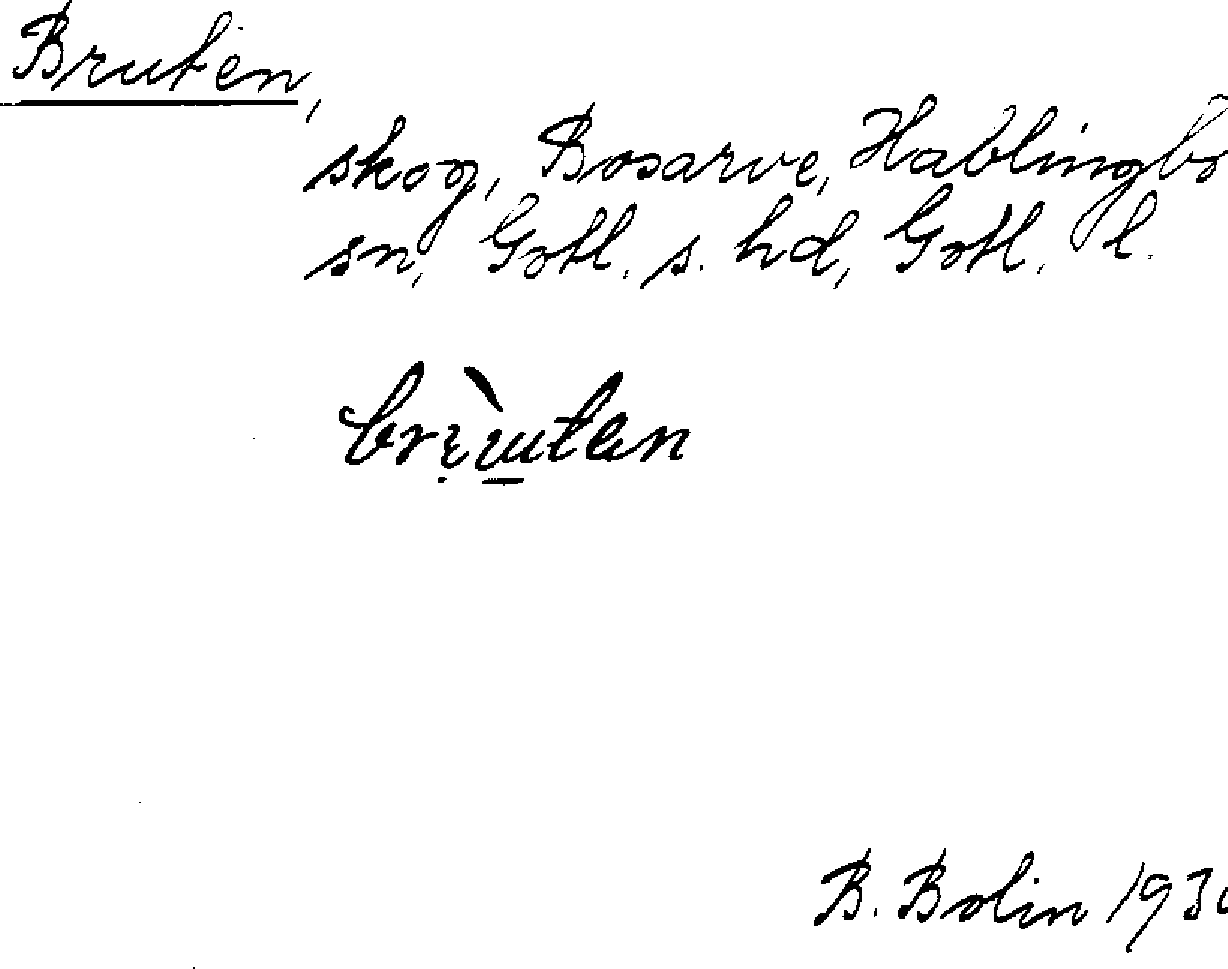 Bruten,
skog, Bosarve, Hablingbo
sn, Gotl. s. hd, Gotl. l.
B. Bolin